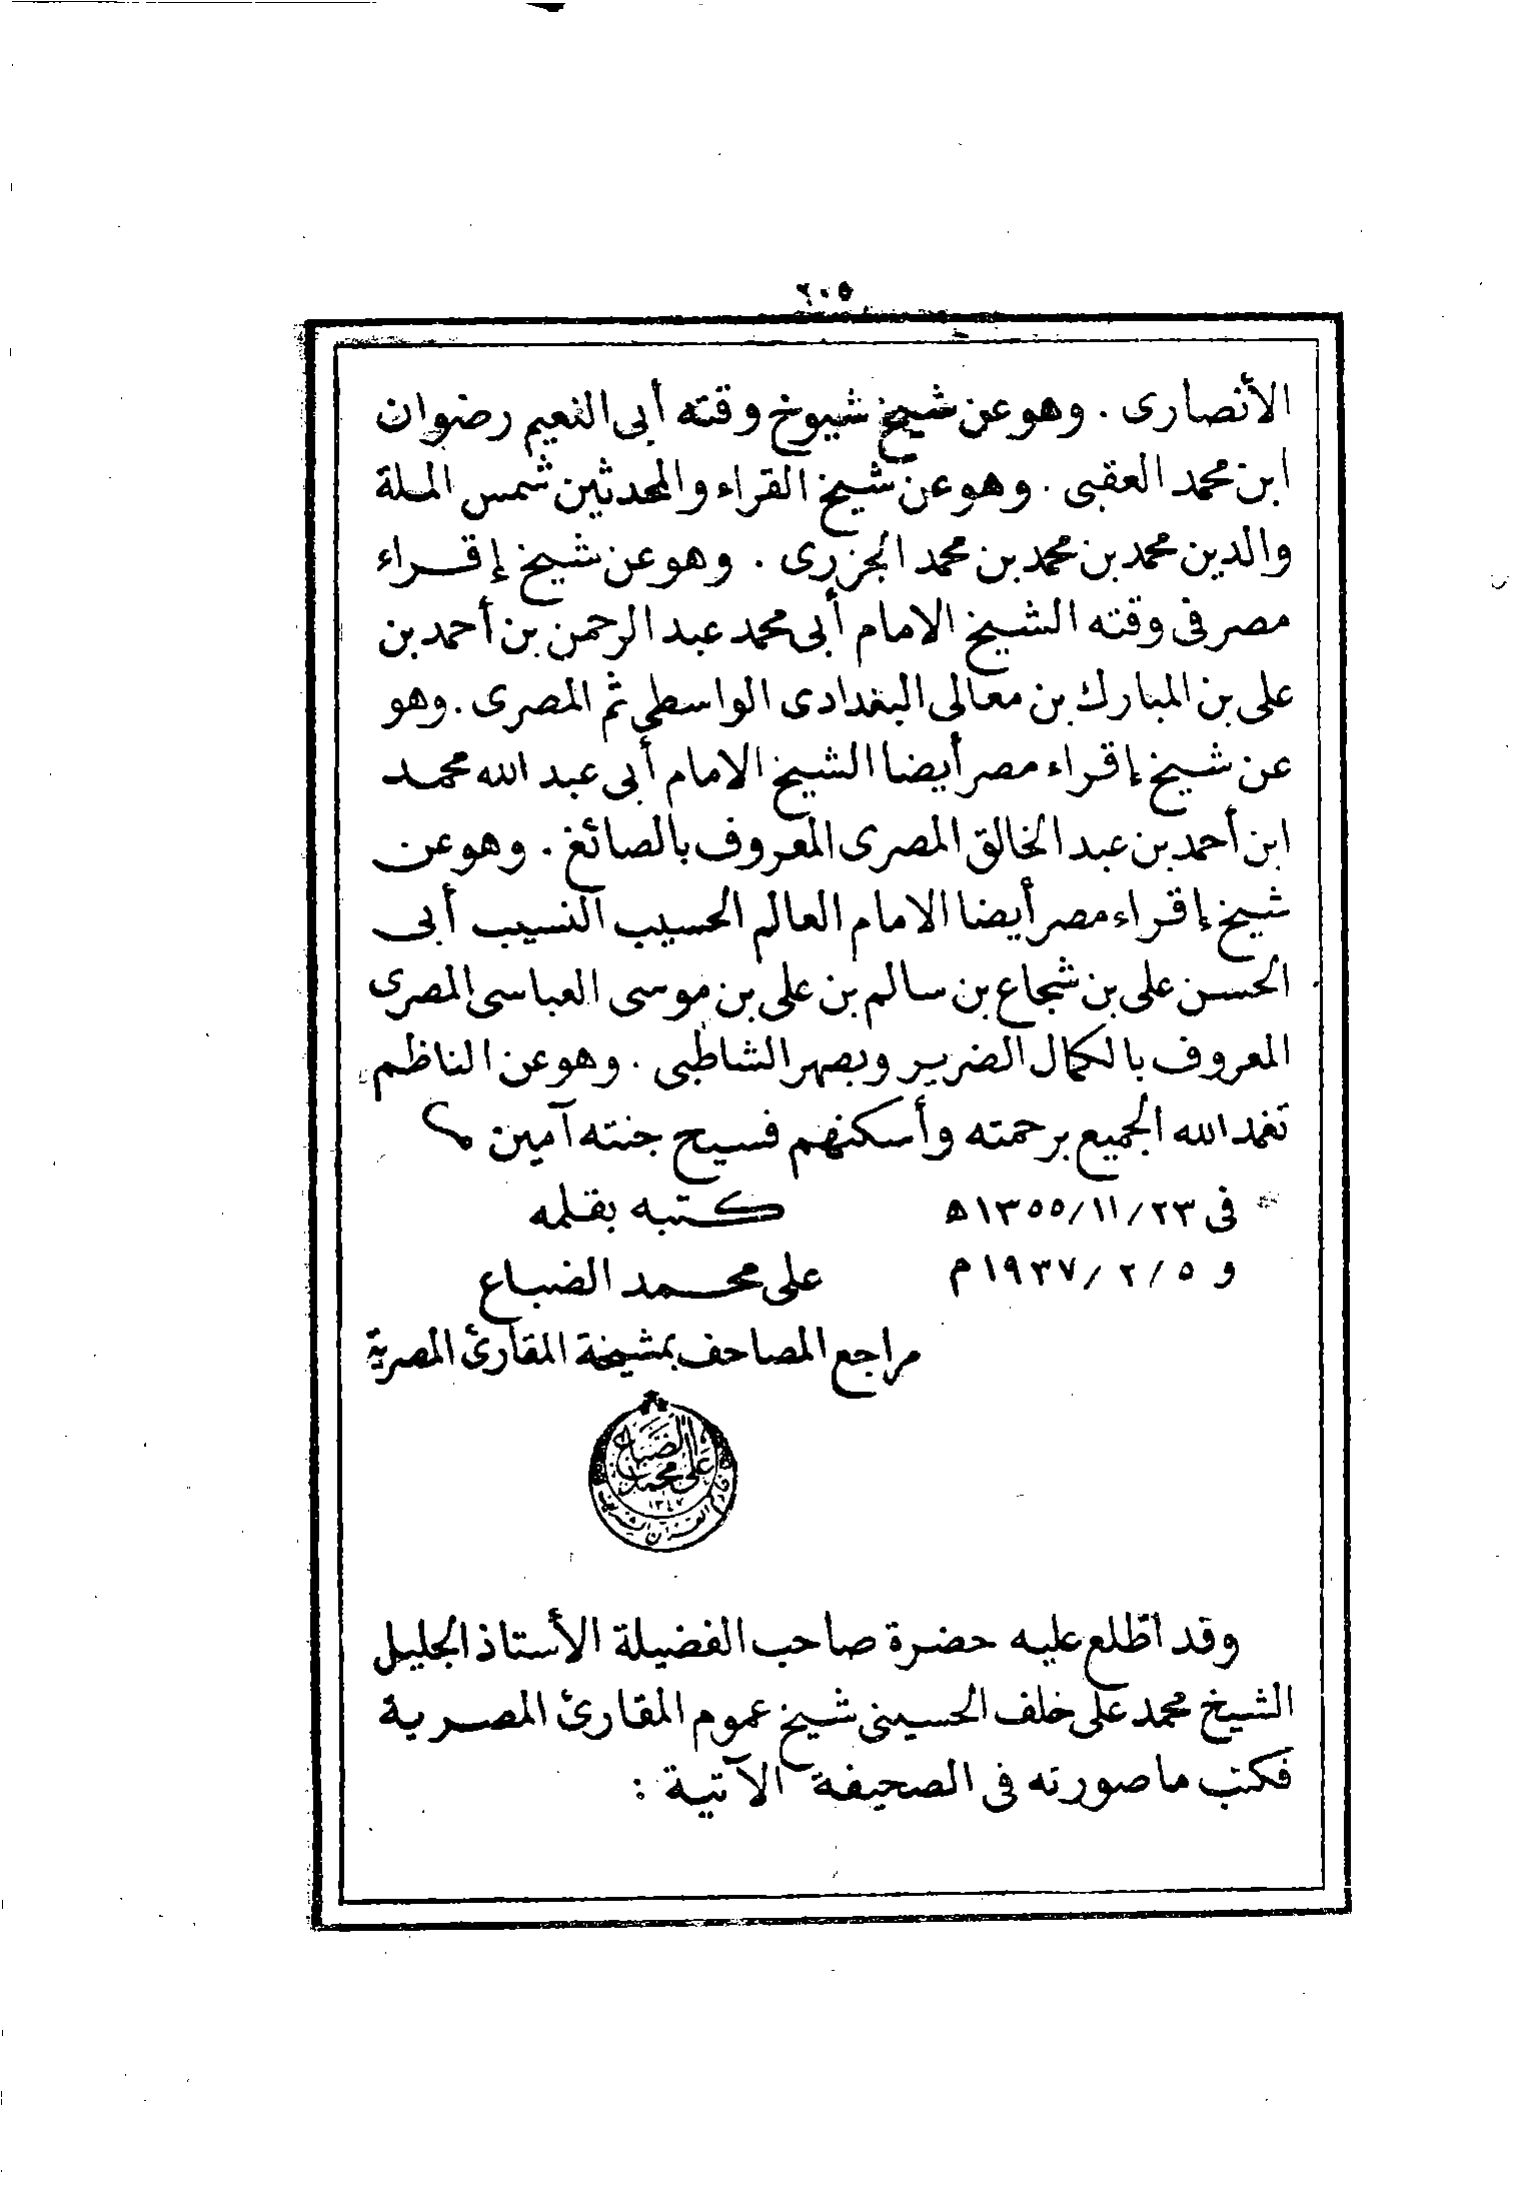 ٢٠٥
الأنصارى . وهو عن شيخ شيوخ وقته أبى النعيم رضوان
ابن محمد العقبى . وهو عن شيخ القراء والمحدثين شمس الملة
والدين محمد بن محمد بن محمد الجزرى . وهو عن شيخ إقراء
مصر فى وقته الشيخ الامام أبى محمد عبد الرحمن بن أحمد بن
على بن المبارك بن معالى البغدادى الواسطى ثم المصرى . وهو
عن شيخ إقراء مصر أيضا الشيخ الامام أبى عبد الله محمد
ابن أحمد بن عبد الخالق المصرى المعروف بالصائغ . وهو عن
شيخ إقراء مصر أيضا الامام العالم الحسيب النسيب أبى
الحسن على بن شجاع بن سالم بن على بن موسى العباسى المصرى
المعروف بالكمال الضرير وبصهر الشاطبى . وهو عن الناظم
تغمد الله الجميع برحمته وأسكنهم فسيح جنته آمين
فى ٢٣/١١/١٣٥٥ﻫ كتبه بقلمه
و ٥/٢/١٩٣٧م على محمد الضباع
مراجع المصاحف بمشيخة المقارئ المصرية
على محمد الضباع
١٣٤٧
خادم القرآن الشريف
وقد اطلع عليه حضرة صاحب الفضيلة الأستاذ الجليل
الشيخ محمد على خلف الحسينى شيخ عموم المقارئ المصرية
فكتب ما صورته فى الصحيفة الآتية :